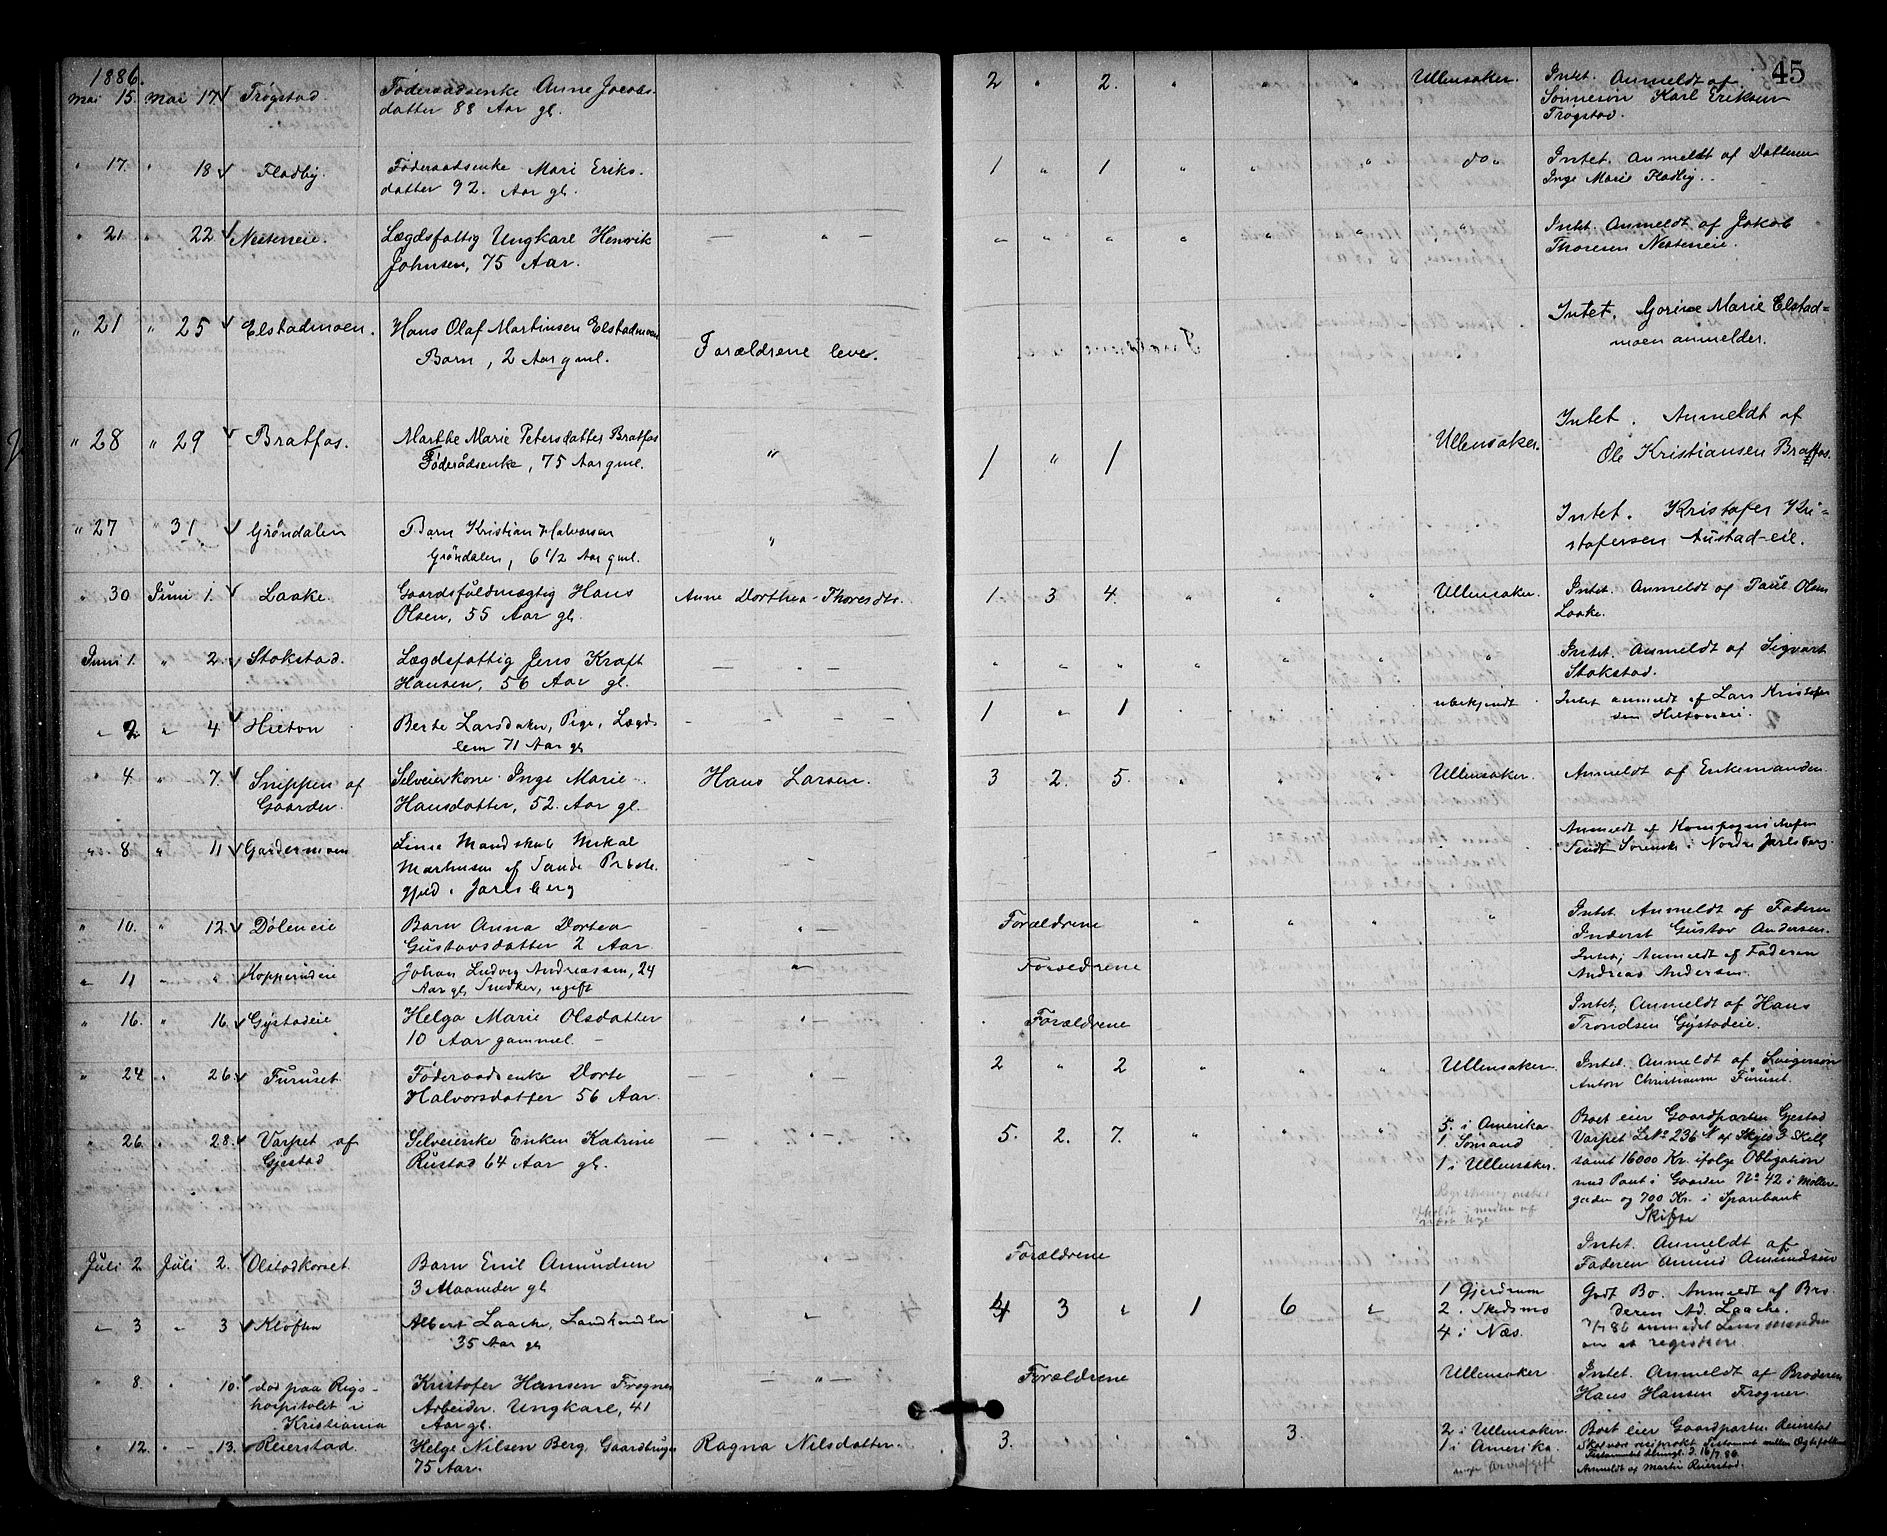 1886.
45
Mai 15. Mai 17 Trøgstad. Føderaadsenke Anne Jacobs- 2 " 2. " Ullensaker. Intet. Anmeldt af
datter 88 Aar gl. Sønnesøn Karl Eriksen
Trøgstad.
" 17. " 18 Fladby. Føderaadsenke Mari Eriks- 1 " 1 " " " do " Intet. Anmeldt af Datteren
datter 92. Aar gl. Inge Marie Fladby.
" 21 " 22 Nesteneie. Lægdsfattig Ungkarl Henrik — " — " " " " " " " Intet. Anmeldt af Jakob
Johnsen, 75 Aar. Thoresen Nesteneie.
" 21 " 25 Elstadmoen. Hans Olaf Martinsen Elstadmoen Intet. Gorine Marie Elstad=
Barn, 2 Aar gml. Forældrene lever. moen anmelder.
" 28 " 29 Bratfos. Marthe Marie Petersdatter Bratfos " 1 " 1 Ullensaker. Intet. Anmeldt af
Føderådsenke, 75 Aar gml. Ole Kristiansen Bratfos.
" 27 " 31 Grøndalen Barn Kristian Halvorsen " Intet. Kristofer Kri-
Grøndalen, 6 1/2 Aar gml. stofersen Austad-eie.
" 30 Juni 1. Laake. Gaardsfuldmægtig Hans Anne Dorthea Thoresdtr. 1. 3 4. " " " Ullensaker. Intet. Anmeldt af Paul Olsen
Olsen, 55 Aar gl. Laake.
Juni 1. " 2. Stokstad. Lægdsfattig Jens Kraft — " — " " " " " " " Intet. Anmeldt af Sigvart
Hansen, 56 Aar gl. Stokstad.
" 2. " 4 Hilton Berte Larsdatter, Pige, Lægds 1 " 1 ubekjendt Intet anmeldt af Lars Kristofer
lem 71 Aar gl sen Hiltoneie.
" 4 " 7. Snippen af Selveierkone Inge Marie Hans Larsen. 3 2. 5. " " Ullensaker. Anmeldt af Enkemanden
Gaarder. Hansdatter, 52. Aar gl.
" 8. " 11 Gardermoen Mandskab Mikal Anmeldt af Kompagnichefen
Martinsen af Sande Præste- Nordre Jarlsberg.
gjeld i Jarlsberg
" 10. " 12. Døleneie Barn Anna Dortea — " — Forældrene " " " " Intet Anmeldt af Faderen
Gustavsdatter 2 Aar Inderst Gustav Andersen.
" 11 " " Kopperudeie Johan Ludvig Andreassen, 24 " Forældrene Intet, Anmeldt af Faderen
Aar gl. Snedker, ugift Andreas Andersen.
" 16. " 16. Gystadeie Helga Marie Olsdatter " — Forældrene Intet, Anmeldt af Hans
10 Aar gammel. — Trondsen Gystadeie.
" 24 " 26. Furuset. Føderaadsenke Dorte 2 " 2 " " " Ullensaker. Intet. Anmeldt af Svigersøn
Halvorsdatter 56 Aar. Anton Christiansen Furuset.
" 26. " 28. Varpet af Selveierske Enken Katrine — " — 5. 2. 7. " " " 5. i Amerika Boet eier Gaardparten Gjestad
Gjestad Rustad 64 Aar gl. 1. Sømand Varpet Lnr 236 af Skyld 3 Skill
1 i Ullensaker. samt 16000 Kr. ifølge Obligation
med Pant i Gaarden No 42 i Møller-
gaden og 700 Kr. i Sparebank
Skifte
Juli 2 Juli 2. Olstadkorset. Barn Emil Amundsen Forældrene Intet. Anmeldt af
3 Maaneder gl Faderen Amund Amundsen
" 3 " 3 Kløften Albert Laache, Landhandler " 4 3 " 1 6 " 1 Gjerdrum Godt Bo. Anmeldt af Bro
35 Aar gl 2. Skedsmo deren Ad. Laache.
4 i Næs. 7/7 86 anmodet Lensmanden
om at registrere
" 8. " 10. død paa Rigs- Kristofer Hansen Frogner — " — Forældrene Ullensaker Intet. Anmeldt af Broderen
hospitalet i Arbeider. Ungkarl, 41 Hans Hansen Frogner.
Kristiania Aar gl.
" 12. " 13. Reierstad. Helge Nilsen Berg. Gaardbruger Ragna Nilsdatter. 3. " " 3. 2 i Ullensaker. Boet eier Gaardparten Reierstad
75 Aar. 1 i Amerika. reciprokt Testament mellem Ægtefolkene
ingen Arveafgift 16/7 86
Anmeldt af Martin Reierstad.